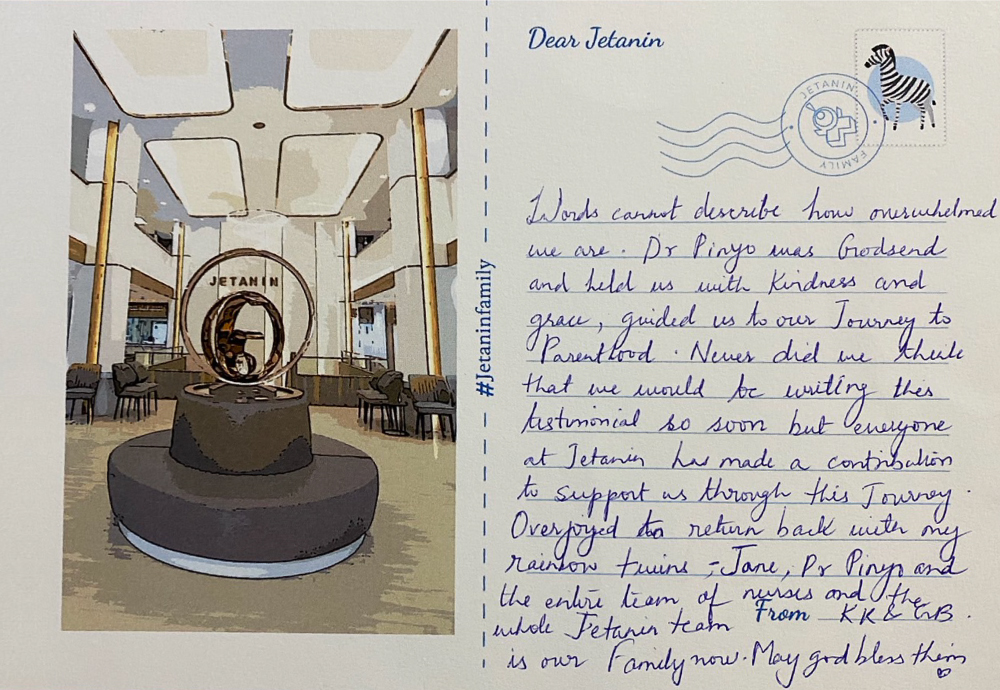 JETANIN
#Jetaninfamily
Dear Jetanin
JETANIN
FAMILY
Words cannot describe how overwhelmed
we are. Dr Pinyo was Godsend
and held us with Kindness and
grace, guided us to our Journey to
Parenthood. Never did we think
that we would be writing this
testimonial so soon but everyone
at Jetanin has made a contribution
to support us through this Journey.
Overjoyed to return back with my
rainbow twins - Jane, Dr Pinyo and
the entire team of nurses and the
whole Jetanin team
From KK & GB.
is our Family now. May god bless them